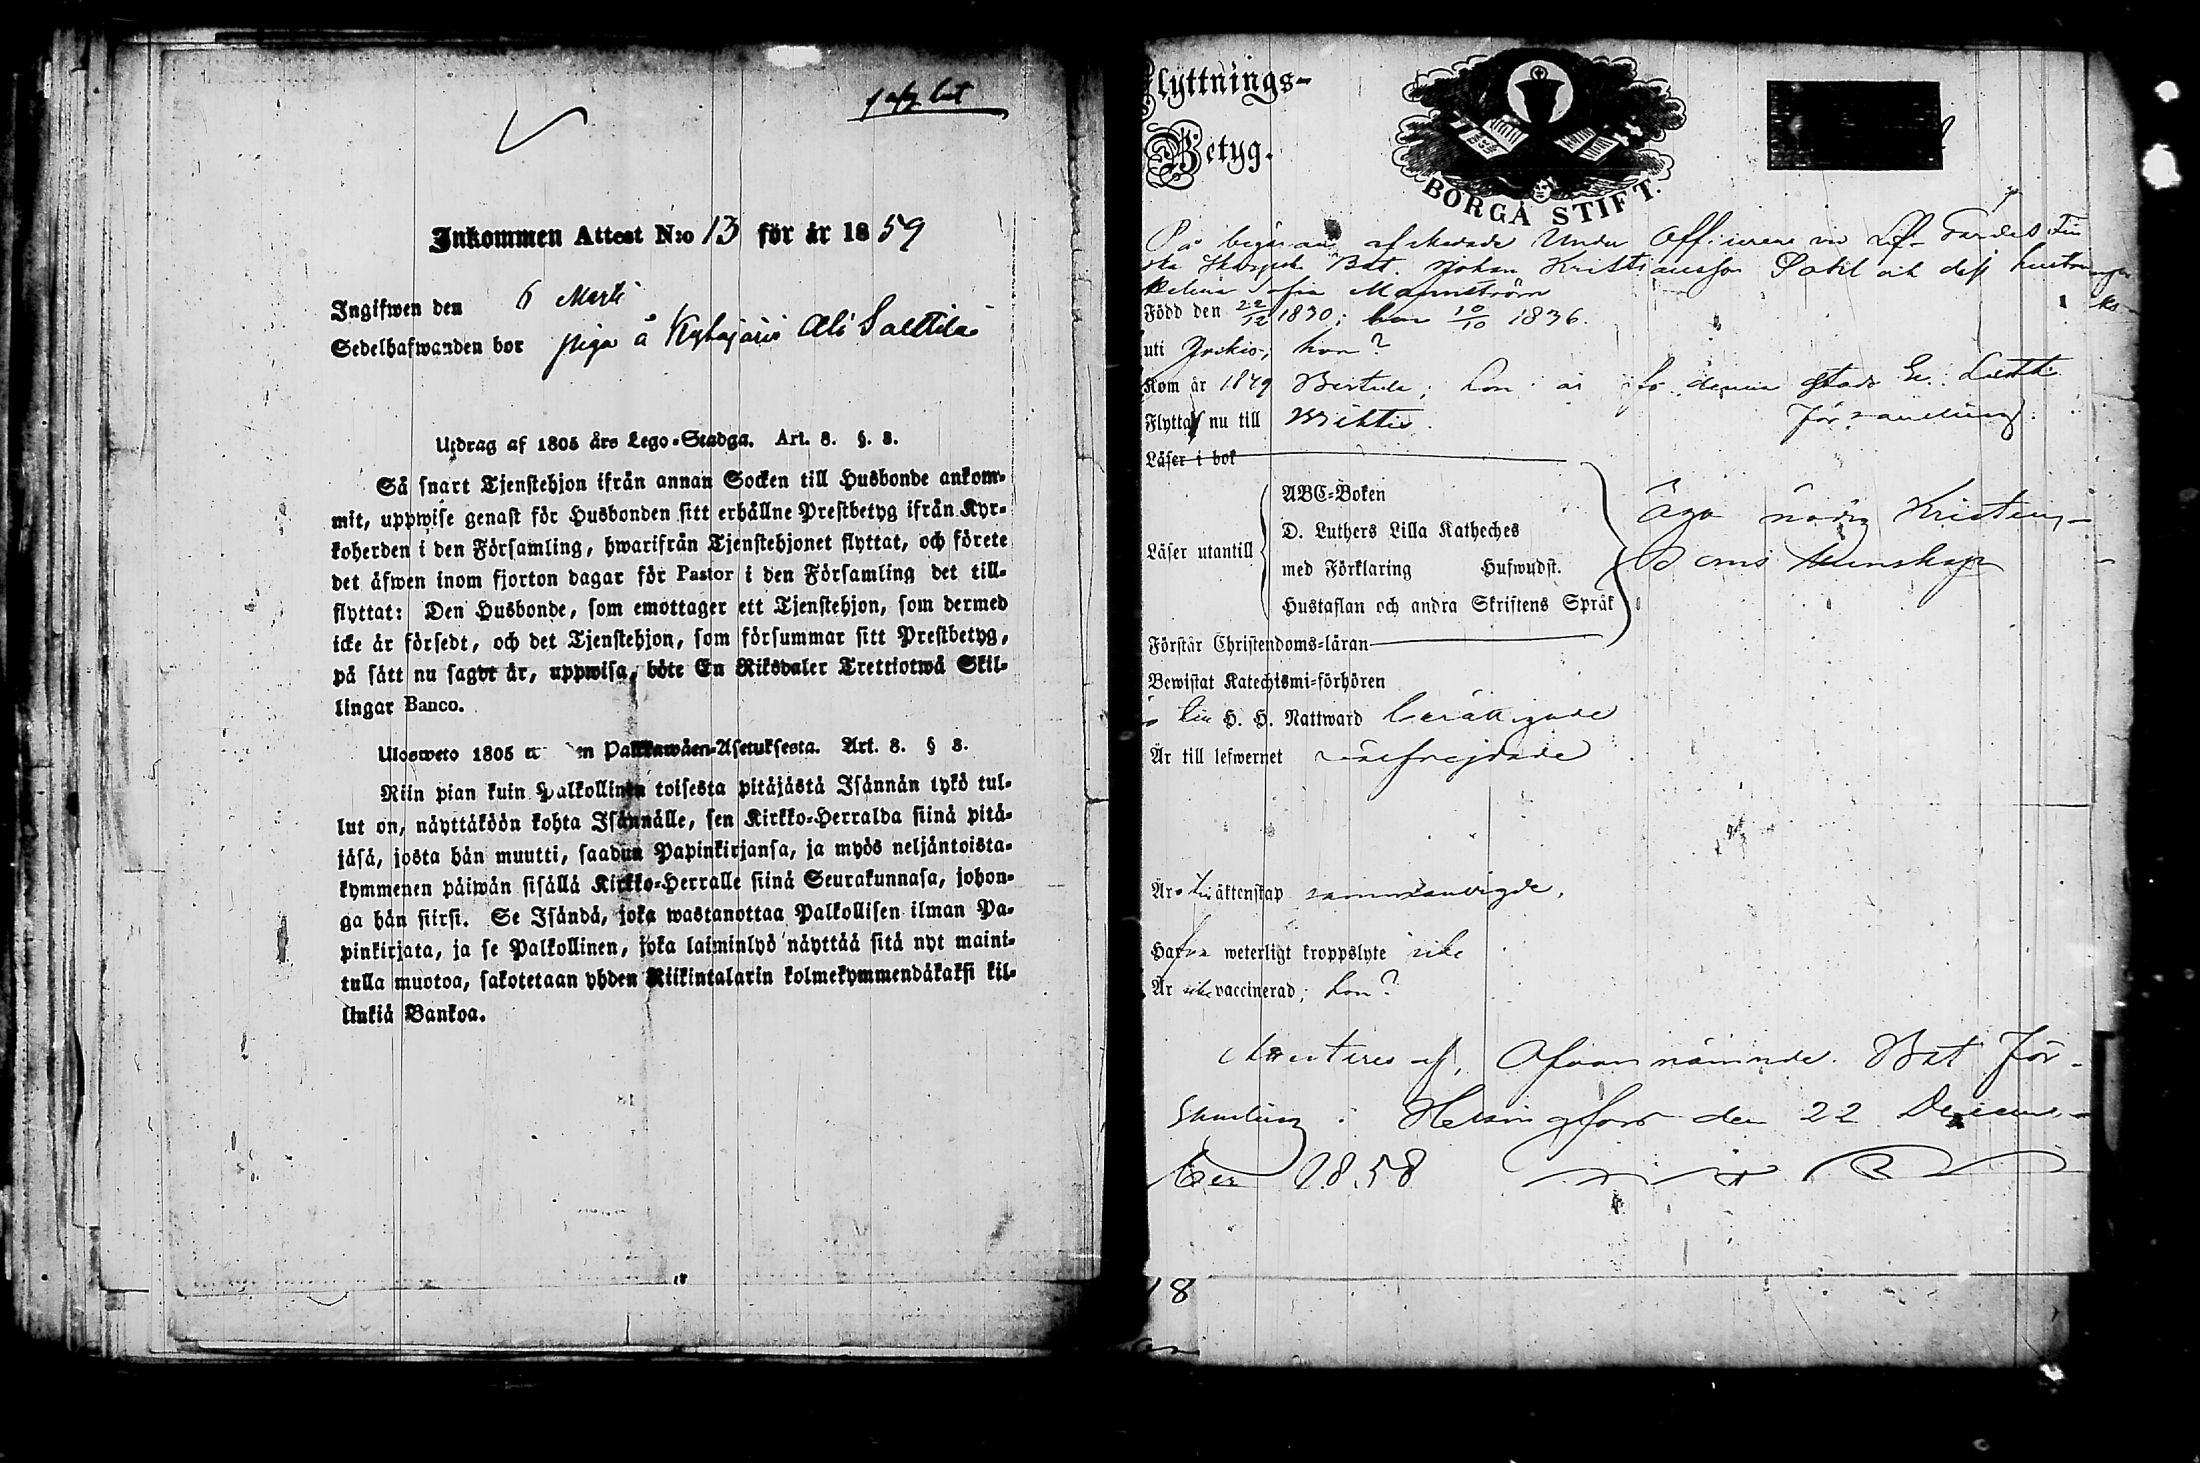 Inkommen Attest N:o 13 för år 1859
Ingifwen den 6 Marti
Sedelhafwanden bor piga å
Utdrag af 1805 års Lego-Stadga. Art. 8. §. 8.
Så snart Tjenstehjon ifrån annan Socken till Husbonde ankom-
mit, uppwise genast för Husbonden sitt erhållne Prestbetyg ifrån Kyr-
koherden i den Församling, hwarifrån Tjenstehjonet flyttat, och förete
det äfwen inom fjorton dagar för Pastor i den Församling det till-
flyttat: Den Husbonde, som emottager ett Tjenstehjon, som dermed
icke är försedt, och det Tjenstehjon, som försummar sitt Prestbetyg,
på sätt nu sagdt är, uppwisa, böte En Riksdaler Trettiotwå Skil-
lingar Banco.
Ulosweto 1805 Palkkawäen-Asetuksesta. Art. 8. § 8.
Niin pian kuin Palkollinen toisesta pitäjästä Isännän tykö tul-
lut on, näyttäköön kohta Isännälle, sen Kirkko-Herralda siinä pitä-
jäsä, josta hän muutti, saadun Papinkirjansa, ja myös neljäntoista-
kymmenen päiwän sisällä Kirkko-Herralle siinä Seurakunnasa, johon-
ga hän siirsi. Se Isändä, joka wastanottaa Palkollisen ilman Pa-
pinkirjata, ja se Palkollinen, joka laiminlyö näyttää sitä nyt maini-
tulla muotoa, sakotetaan yhden Riikintalarin kolmekymmendäkaksi kil-
linkiä Bankoa.
Flyttnings-
Betyg.
BORGÅ STIFT.
På begäran afskedade Under Officeren vid Lif-Gardets Fin
ska Skarpsk. Bat. Johan Kristiansson och dess hustru
Helena Sofia
Född den 22/12 1830; hon 10/10 1836.
uti Jockis; hon?
Kom år 1849 hon är ifr. denna stads
Flyttar nu till Wichtis. Församling.
Läser i bok
Läser utantill
ABC-Boken
D. Luthers Lilla Katheches
med Förklaring Hufwudst.
Hustaflan och andra Skriftens Språk
Äga nödig Kristen-
doms kunskap
Förstår Christendoms-läran
Bewistat Katechismi-förhören
H. H. Nattward berättigade
Är till lefwernet wälfrejdade
Är i äktenskap sammanvigde.
Hafva weterligt kroppslyte icke
Är vaccinerad; hon?
Attesteres af Ofvannämnde Bat. För-
samling i Helsingfors den 22 Decem-
ber 1858
18